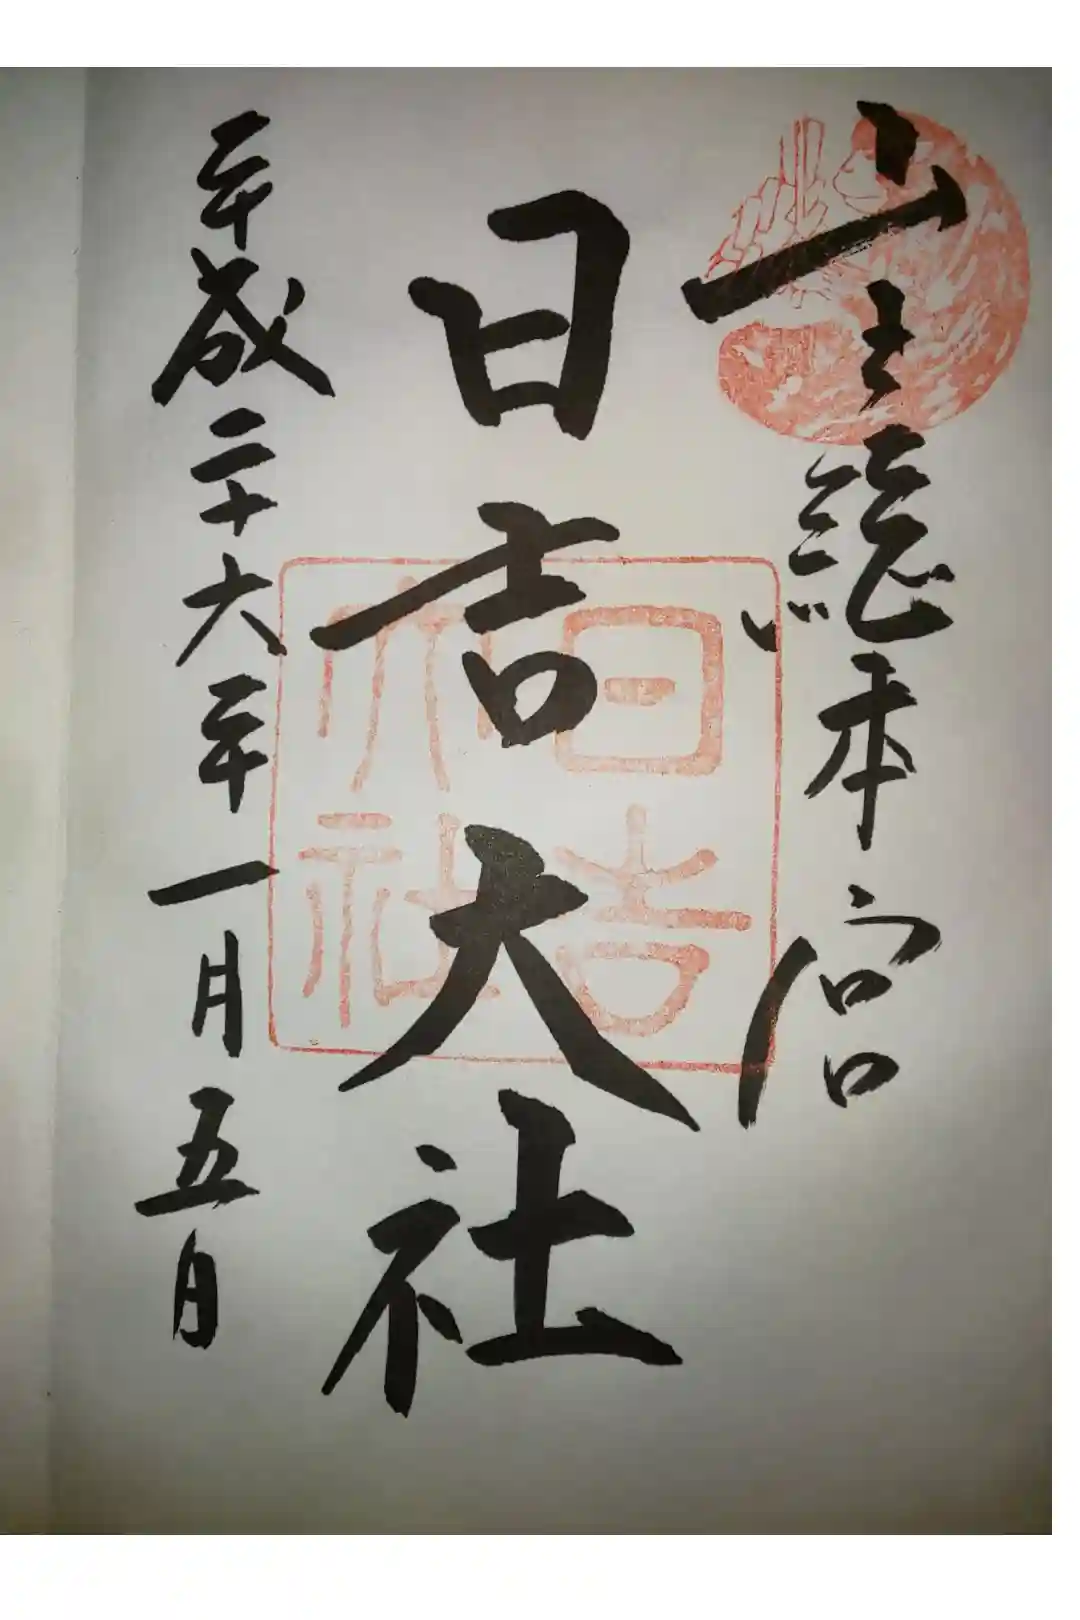 山王總本宮
日吉大社
平成二十六年一月五日
日吉
大社